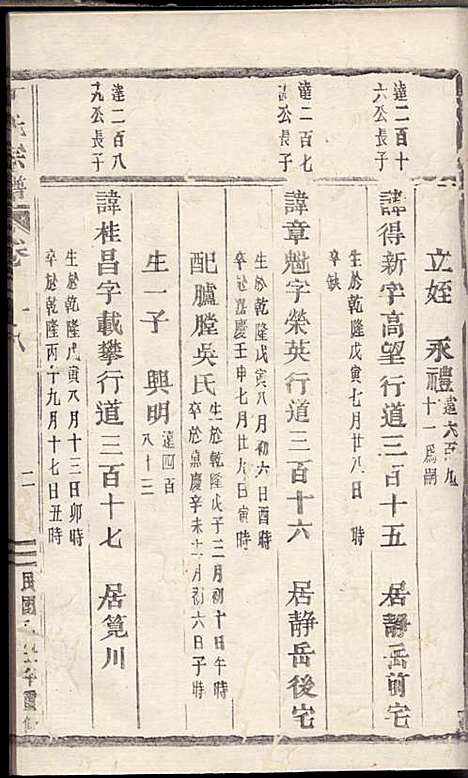 立姪　永禮
十一為嗣
達二百十
六公長子
諱得新字高望行道三百十五　居靜岳前宅
生於乾隆戊寅七月廿八日　時
卒缺
達二百七
公長子
諱章魁字榮英行道三百十六　居靜岳後宅
生於乾隆戊寅八月初六日酉時
卒於嘉慶壬申七月廿九日寅時
配臚膛吳氏
生於乾隆戊子二月初十日午時
卒於嘉慶辛未十二月初六日子時
生一子　興明
遠四百
八十三
達二百八
九公長子
諱桂昌字載攀行道三百十七　居筧川
生於乾隆戊寅八月十三日卯時
卒於乾隆丙十九月十七日丑時
氏宗譜
卷
二
民國